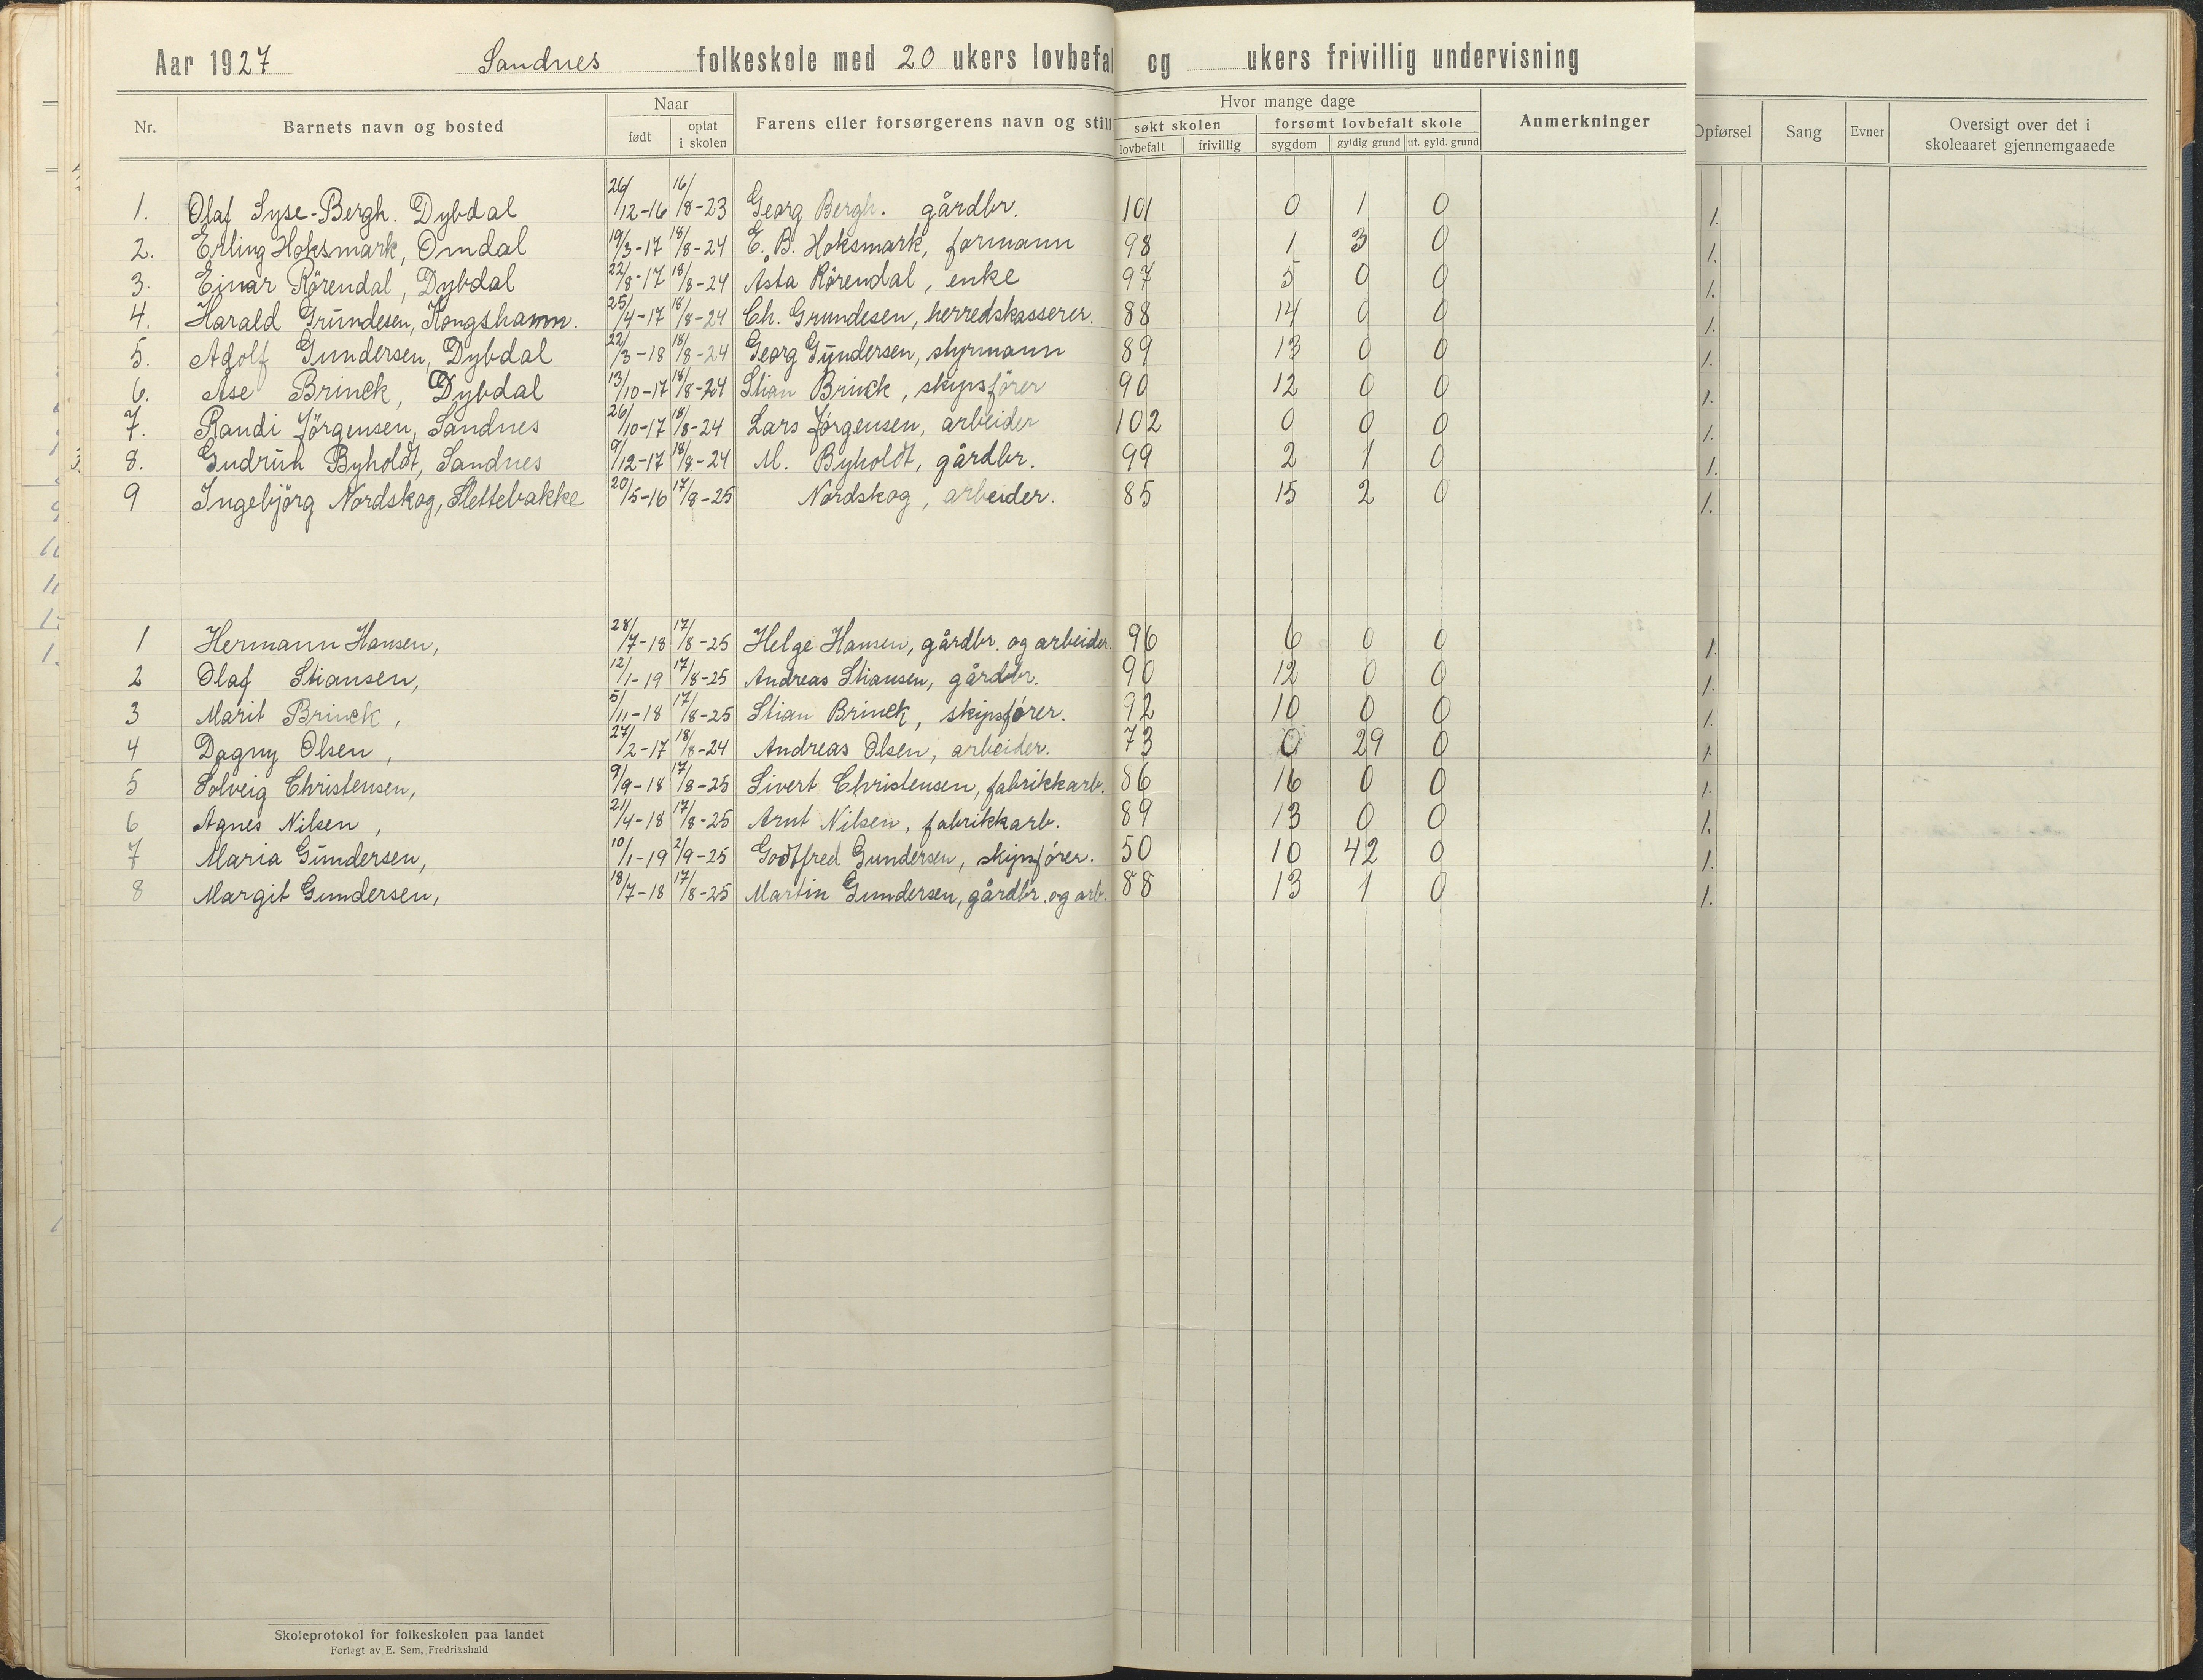 Aar 1927 Sandnes folkeskole med 20 ukers lovbefa og ukers frivillig undervisning
Nr. Barnets navn og bosted Naar født optat i skolen Farens eller forsørgerens navn og still Hvor mange dage søkt skolen lovbefalt frivillig forsømt lovbefalt skole sygdom gyldig grund ut. gyld. grund Anmerkninger Opførsel Sang Evner Oversigt over det i skoleaaret gjennemgaaede
1. Olaf Syse-Bergh. Dybdal 26/12-16 16/8-23 Georg Bergh. gårdbr. 101 0 1 0 1.
2. Erling Hoksmark, Omdal 19/3-17 18/8-24 E. B. Hoksmark, formann 98 1 3 0 1.
3. Einar Rörendal, Dybdal 22/8-17 18/8-24 Åsta Rörendal, enke 97 5 0 0 1.
4. Harald Grundesen, Kongshamn. 25/4-17 18/8-24 Ch. Grundesen, herredskasserer. 88 14 0 0 1.
5. Adolf Gundersen, Dybdal 22/3-18 18/8-24 Georg Gundersen, styrmann 89 13 0 0 1.
6. Åse Brinck, Dybdal 13/10-17 18/8-24 Stian Brinck, skipsfører 90 12 0 0 1.
7. Randi Jörgensen, Sandnes 26/10-17 18/8-24 Lars Jørgensen, arbeider 102 0 0 0 1.
8. Gudrun Byholdt, Sandnes 9/12-17 18/8-24 M. Byholdt, gårdbr. 99 2 1 0 1.
9 Ingebjörg Nordskog, Slettebakke 20/5-16 17/8-25 Nordskog, arbeider. 85 15 2 0 1.
1 Hermann Hansen, 28/7-18 17/8-25 Helge Hansen, gårdbr. og arbeider. 96 6 0 0 1.
2 Olaf Stiansen, 12/1-19 17/8-25 Andreas Stiansen, gårdbr. 90 12 0 0 1.
3 Marit Brinck, 5/11-18 17/8-25 Stian Brinck, skipsfører. 92 10 0 0 1.
4 Dagny Olsen, 27/2-17 18/8-24 Andreas Olsen, arbeider. 73 0 29 0 1.
5 Solveig Christensen, 9/9-18 17/8-25 Sivert Christensen, fabrikkarb. 86 16 0 0 1.
6 Agnes Nilsen, 21/4-18 17/8-25 Arnt Nilsen, fabrikkarb. 89 13 0 0 1.
7 Maria Gundersen, 10/1-19 2/9-25 Godtfred Gundersen, skipsfører. 50 10 42 0 1.
8 Margit Gundersen, 18/7-18 17/8-25 Martin Gundersen, gårdbr. og arb. 88 13 1 0 1.
Skoleprotokol for folkeskolen paa landet
Forlagt av E. Sem, Fredrikshald